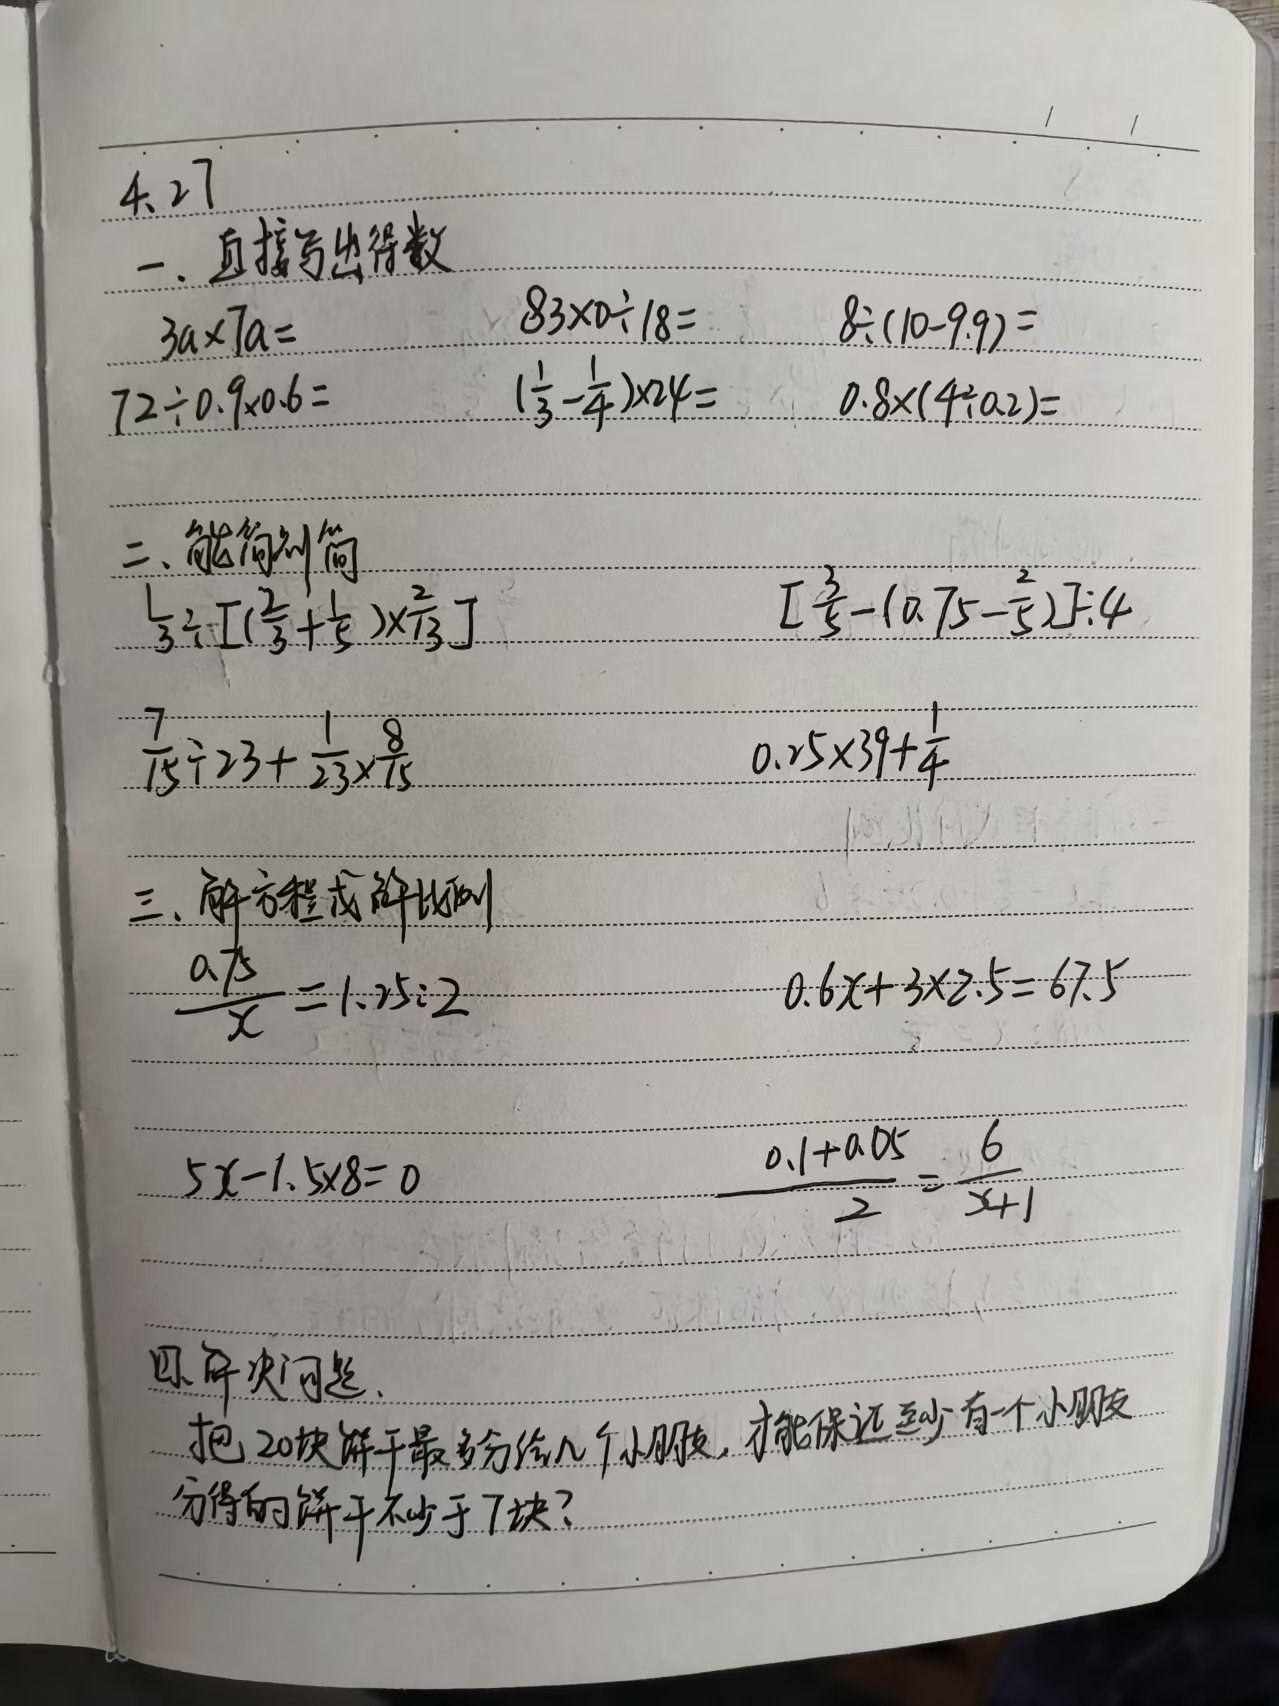 4.27
一、直接写出得数
3a×7a= 83×0÷18= 8÷(10-9.9)=
72÷0.9×0.6= (1/3-1/4)×24= 0.8×(4÷0.2)=
二、能简则简
1/3÷[(2/3+1/5)×2/13] [3/5-(0.75-2/5)]÷4
7/15÷23+1/23×8/15 0.25×39+1/4
三、解方程或解比例
0.75/x=1.25:2 0.6x+3×2.5=67.5
5x-1.5×8=0 (0.1+0.05)/2=6/(x+1)
四、解决问题.
把20块饼干最多分给几个小朋友,才能保证至少有一个小朋友
分得的饼干不少于7块?